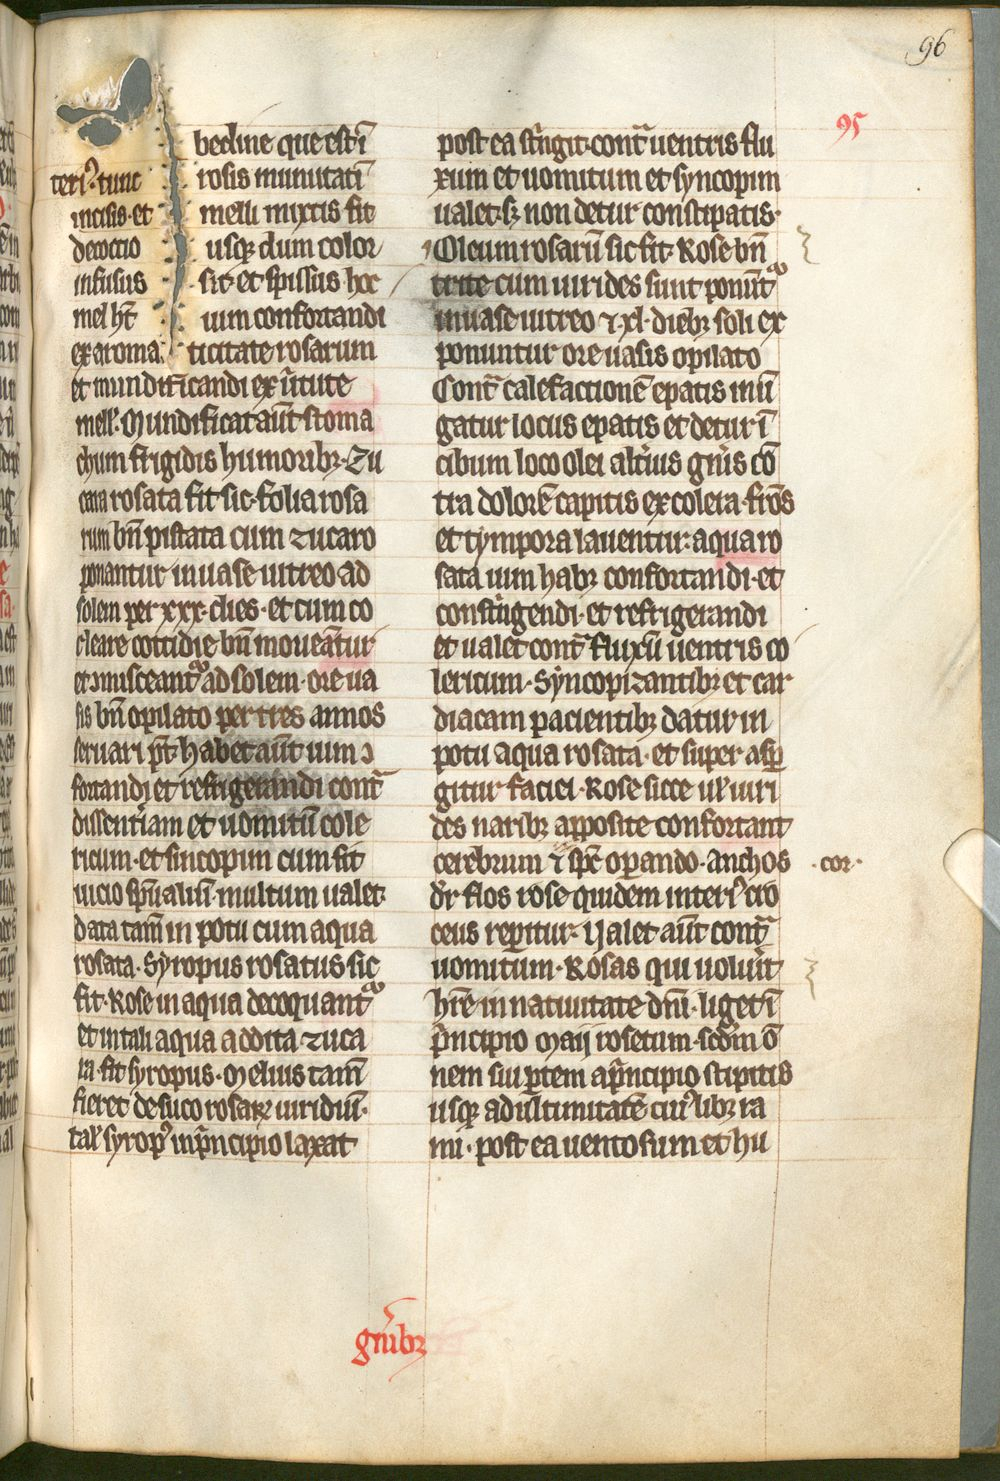 96
95
bedine que est ī
teri᷒ · tunc rosis munutati᷑
incisis · et melli mixtis fit
decoctio usqꝫ dum color
infusus sit · et spissus hoc
mel hꝫ̄t uim confortandi
ex aroma ticitate rosarum
et mundificandi ex ū̓tute
mell̓ · Mundificat aūt stoma
chum frigidis humoribꝫ · Zu
cara rosata fit sic · folia rosa
rum bn̄ pistata cum zucaro
ponantur in uase uitreo ad
solem per xxx · dies · et cum co
cleare cottidie bn̄ moueatur
et misceant᷑ ad solem · ore ua
sis bn̄ opilato per tres annos
seruari pt̄ · habet aūt uim ↄ
fortandi et refrigerandi cont᷑
dissentiam et uomitū cole
ricum · et sincopim cum fit
uicio spūaliū · multum ualet
data tam̄ in potu cum aqua
rosata · Syropus rosatus sic
fit · Rose in aqua decoquant᷑
et in tali aqua addita zuca
ra · fit syropus · Melius tam̄
fieret de suco rosaꝝ uiridiū ·
tal̓ syrop᷒ in p̓ncipio laxat
post ea st̓ngit · cont᷑ uentris flu
xum et uomitum et syncopim
ualet · sꝫ non detur constipatis ·
Oleum rosarū sic fit · Rose bn̄
trite cum uirides sunt ponūt᷑
in uase uitreo ⁊ · xl · diebꝫ soli ex
ponuntur ore uasis opilato
Cont᷑ calefactionē epatis inū
gatur locus epatis et detur ī
cibum loco olei alt̓ius gn̄is cō
tra dolorē capitis ex colera · frōs
et tympora lauentur : aqua ro
sata uim habꝫ confortandi · et
const̓ngendi · et refrigerandi
et ualet cont᷑ fluxū uentris co
lericum · Syncopizantibꝫ et car
diacam pacientibꝫ datur in
potu aqua rosata · et super asꝑ
gitur faciei · Rose sicce ul̓ uiri
des naribꝫ apposite confortant
cerebrum ⁊ spc̄ operando · anthos · cor ·
dr̄ flos rose quidem interi᷒ cro
ceus repitur · Ualet aūt cont᷑
uomitum · Rosas qui uolūit
hr̄e in natiuitate dn̄i · liget ī
p̓ncipio Maij rosetum · scdm ō
nem sui ꝑtem a p̓ncipio stipitis
usqꝫ ad ultimitatē cui᷒ libꝫ ra
mi · post ea uentosum et hu
gn̄ibꝫ